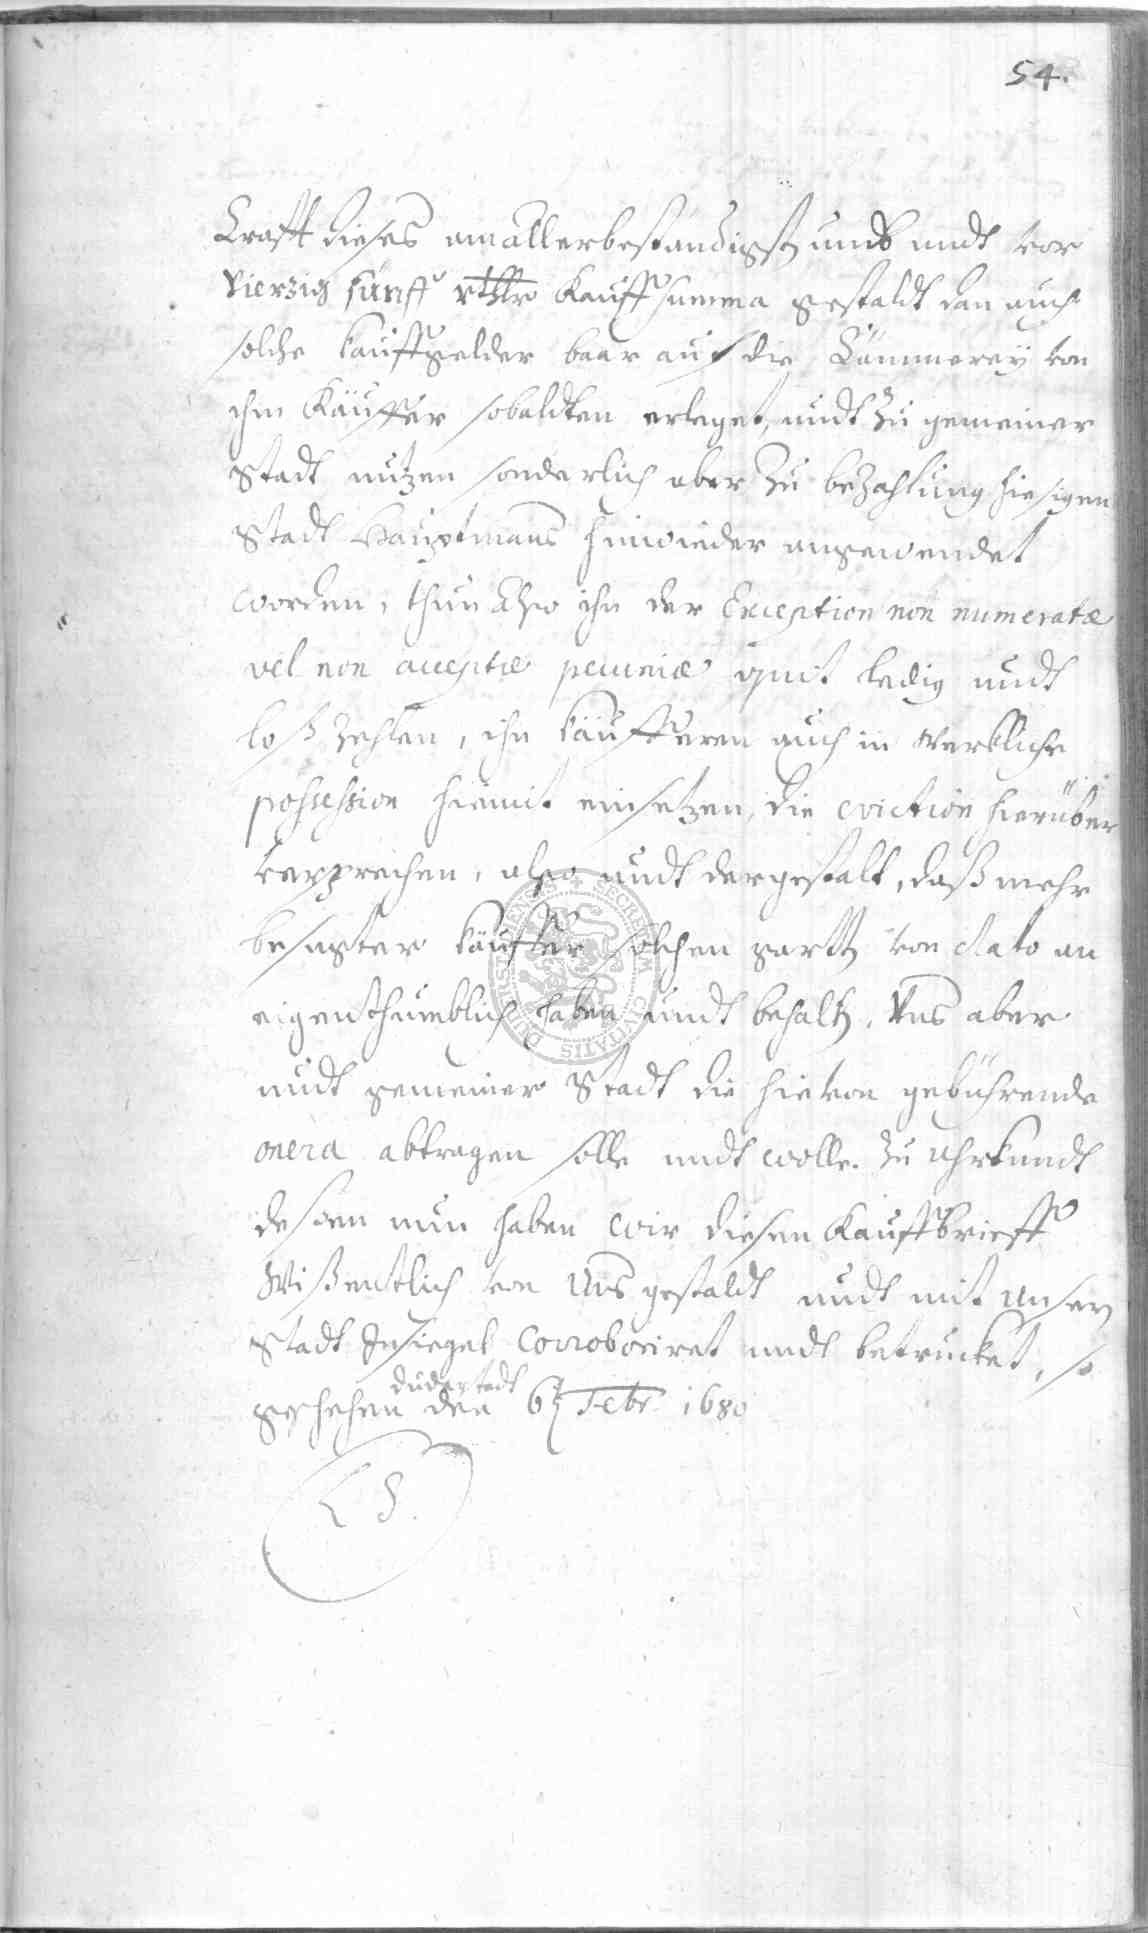 54.
Krafft dieses am allerbeständigsten umb undt vor
Vierzig fünff rthlr Kauffsumma gestaldt dan auch
solche kauffgelder baar auf die Cämmerey von
ihm Käuffer sobaldten erleget, undt zu gemeiner
Stadt nutzen sonderlich aber zu bezahlung hiesigen
Stadt Hauptmans hinwieder angewendet
worden, thun also ihn der Exception non numeratæ
vel non acceptæ pecuniæ quit ledig undt
loß zehlen, ihn käufferen auch in würckliche
possession hiemit einsetzen, die eviction hierüber
versprechen, also undt dergestalt, daß mehr
besagter käuffer solchen gartten von dato an
eigenthumblich haben undt behalten, Uns aber
undt gemeiner Stadt die hievon gebührende
onera abtragen solle undt wolle. Zu uhrkundt
deßen nun haben wir diesen Kauffbrieff
Wißentlich von Uns gestaldt undt mit unserm
Stadt Insiegel corroboriret undt betrucket, so
geschehen duderstadt den 6ten Febr. 1680
L S.
SECRETUM CIVITATIS DUDERSTADENSIS